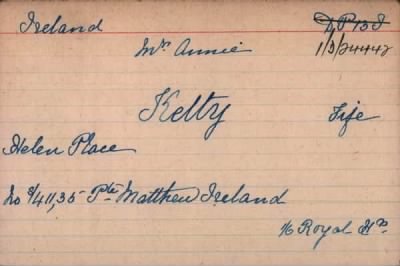 Ireland
Mrs Annie
1/3/24442
Kelty Fife
Helen Place
No S/41135 Pte Matthew Ireland
1/6 Royal Hrs